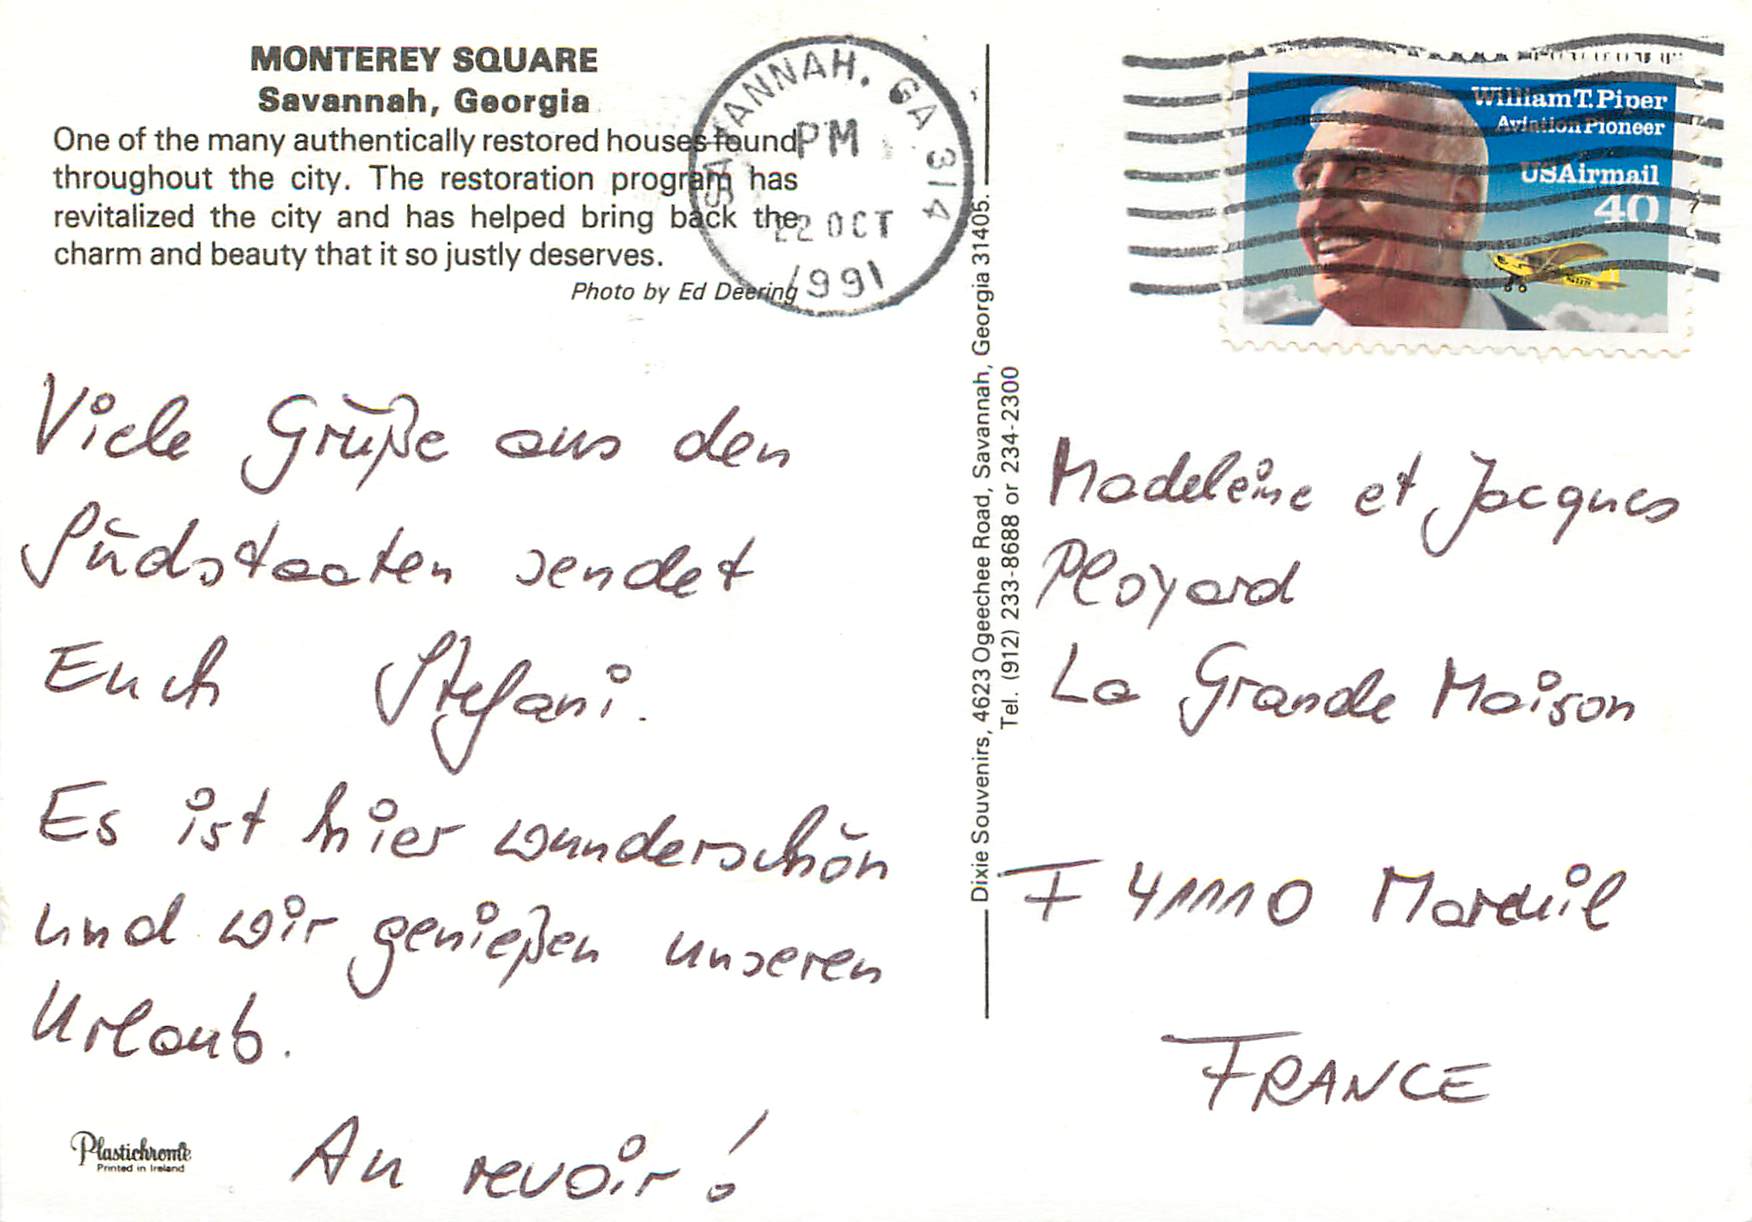 MONTEREY SQUARE
Savannah, Georgia
One of the many authentically restored houses found
throughout the city. The restoration program has
revitalized the city and has helped bring back the
charm and beauty that it so justly deserves.
Photo by Ed Deering
SAVANNAH, GA 314
PM
22 OCT
1991
William T. Piper
Aviation Pioneer
USAirmail
40
Viele Grüße aus den
Südstaaten sendet
Euch Stefani.
Es ist hier wunderschön
und wir genießen unseren
Urlaub.
Au revoir!
Plastichrome
Printed in Ireland
Dixie Souvenirs, 4623 Ogeechee Road, Savannah, Georgia 31405.
Tel. (912) 233-8688 or 234-2300
Madeleine et Jacques
Ployard
La Grande Maison
F 41110 Mareuil
FRANCE